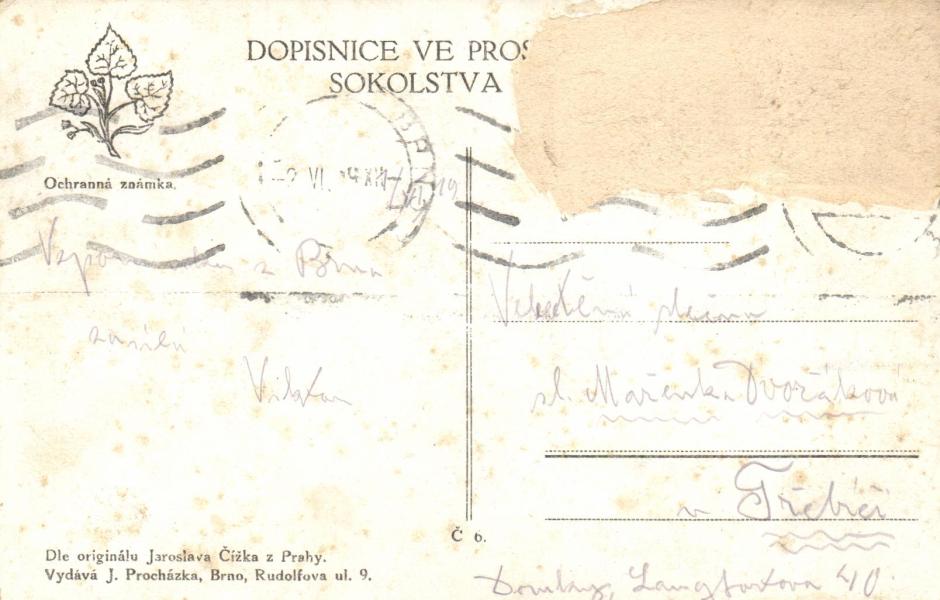 DOPISNICE VE PROS
SOKOLSTVA
Ochranná známka.
BRN
VI.
Vzpomínku z Brna
zasílá
Viktor
Velectěná slečna
sl. Mařenka Dvořáková
v Třebíči
40.
Č 6.
Dle originálu Jaroslava Čížka z Prahy.
Vydává J. Procházka, Brno, Rudolfova ul. 9.